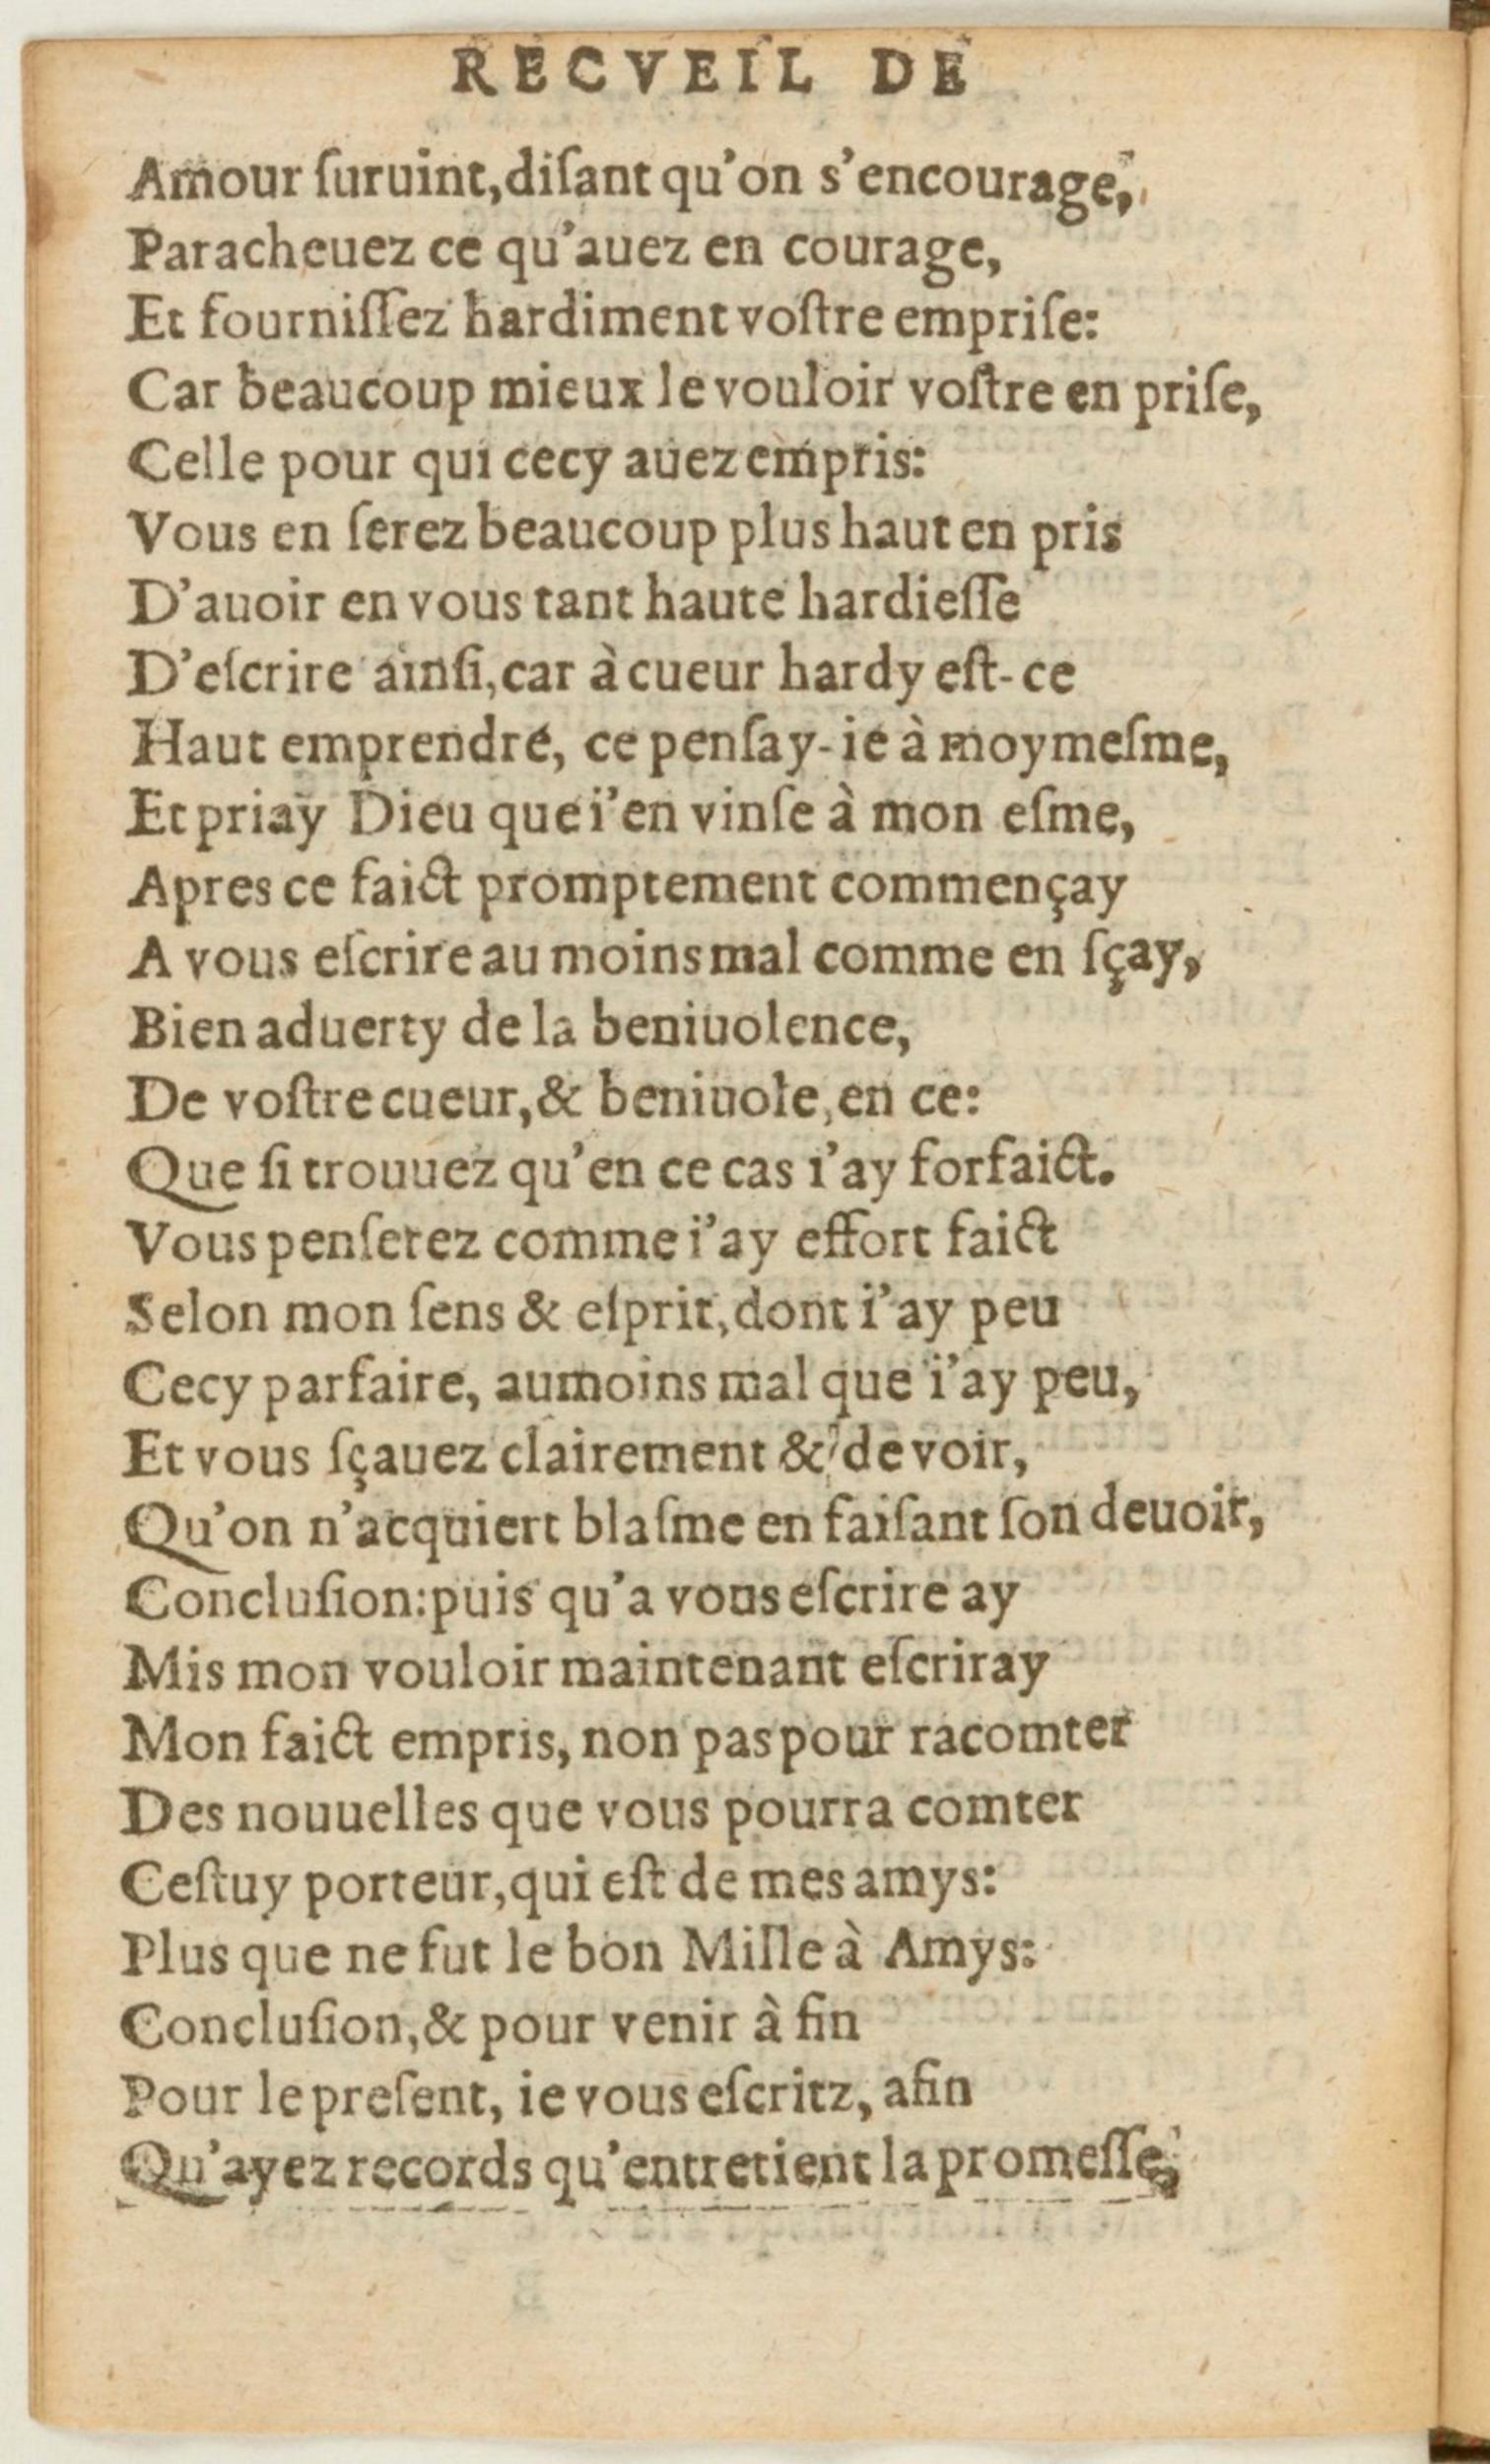 RECVEIL DE
Amour ſuruint, diſant qu'on s'encourage,
Paracheuez ce qu'auez en courage,
Et fourniſſez hardiment voſtre empriſe:
Car beaucoup mieux le vouloir voſtre en priſe,
Celle pour qui cecy auez empris:
Vous en ſerez beaucoup plus haut en pris
D'auoir en vous tant haute hardieſſe
D'eſcrire ainſi, car à cueur hardy eſt-ce
Haut emprendre, ce penſay-ie à moymeſme,
Et priay Dieu que i'en vinſe à mon eſme,
Apres ce faict promptement commençay
A vous eſcrire au moins mal comme en ſçay,
Bien aduerty de la beniuolence,
De voſtre cueur, & beniuole, en ce:
Que ſi trouuez qu'en ce cas i'ay forfaict.
Vous penſerez comme i'ay effort faict
Selon mon ſens & eſprit, dont i'ay peu
Cecy parfaire, aumoins mal que i'ay peu,
Et vous ſçauez clairement & de voir,
Qu'on n'acquiert blaſme en faiſant ſon deuoir,
Concluſion: puis qu'a vous eſcrire ay
Mis mon vouloir maintenant eſcriray
Mon faict empris, non pas pour racomter
Des nouuelles que vous pourra comter
Ceſtuy porteur, qui eſt de mes amys:
Plus que ne fut le bon Mille à Amys:
Concluſion, & pour venir à fin
Pour le preſent, ie vous eſcritz, afin
Qu'ayez records qu'entretient la promeſſe,